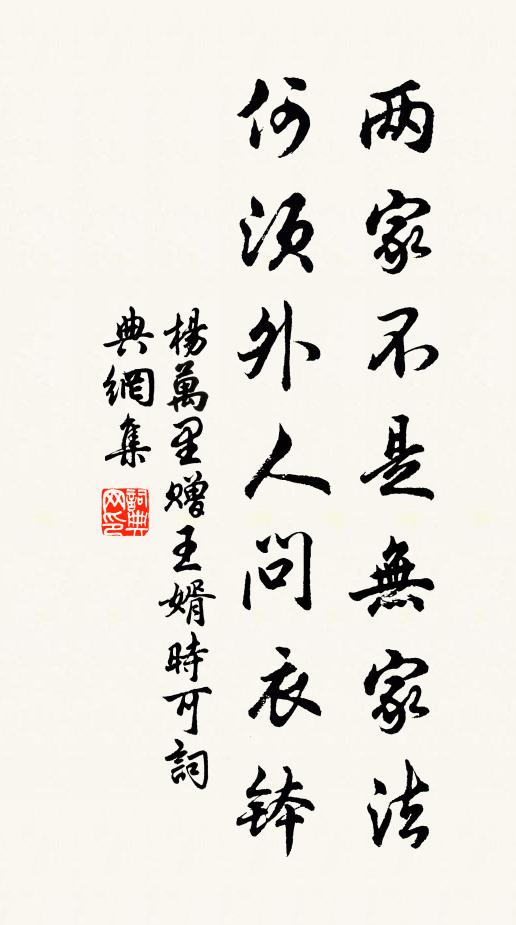 両家不是無家法
何須外人問衣鉢
楊萬里贈王婿時可詞
典網集
詞典网印